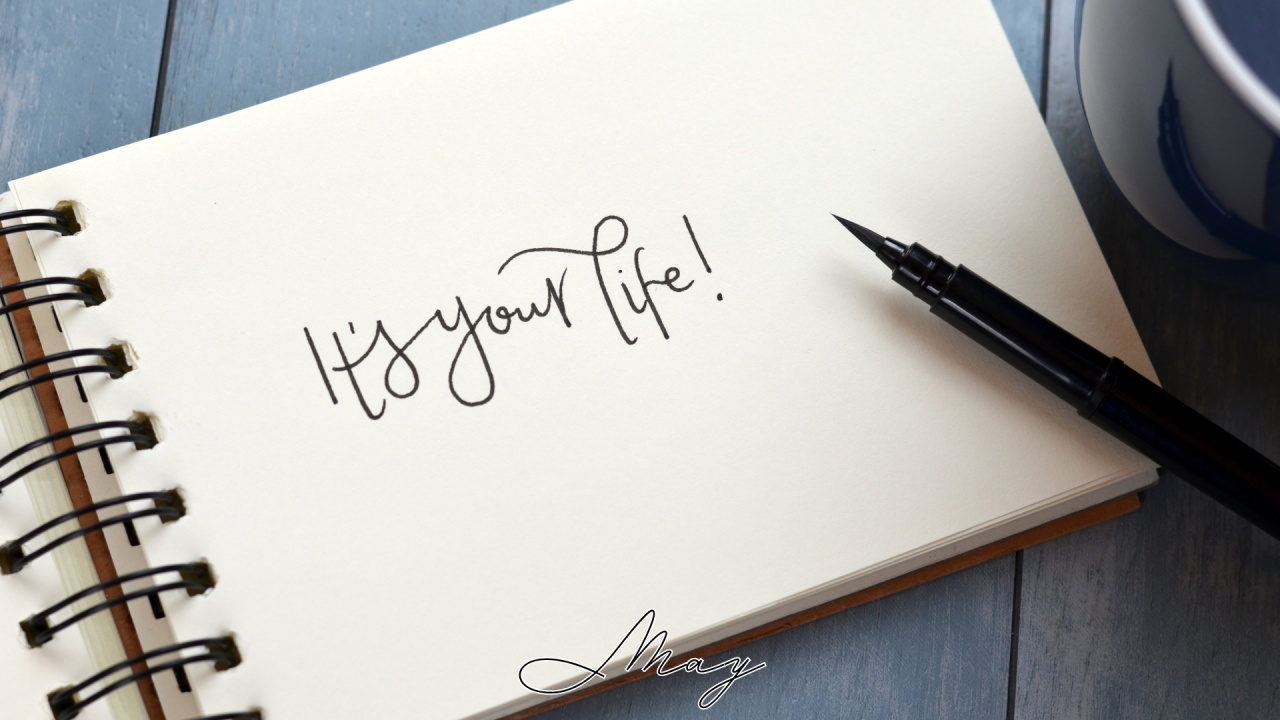 It's your life!
May